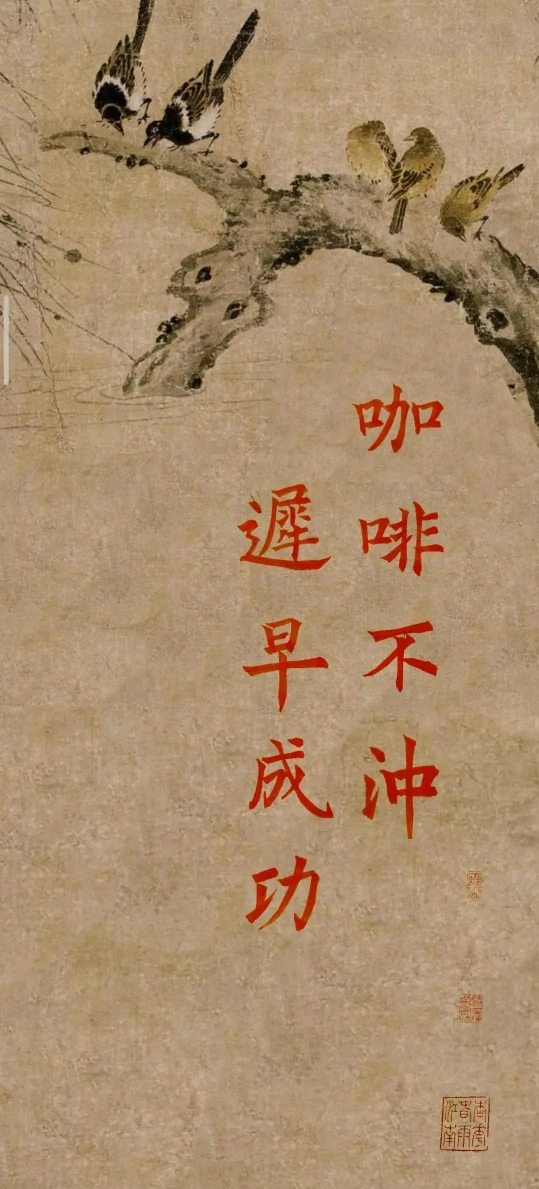 咖啡不沖
遲早成功